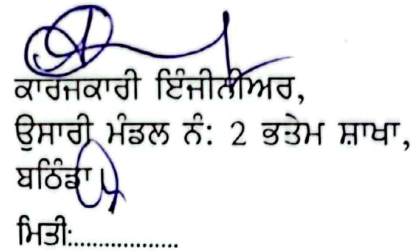 ਕਾਰਜਕਾਰੀ ਇੰਜੀਨੀਅਰ,
ਉਸਾਰੀ ਮੰਡਲ ਨੰ: 2 ਭਤੇਮ ਸ਼ਾਖਾ,
ਬਠਿੰਡਾ।
ਮਿਤੀ:..................